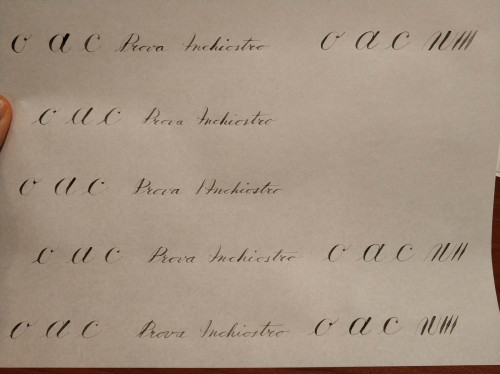 o a c Prova Inchiostro o a c n///
c a c Prova Inchiostro
o a c Prova Inchiostro
o a c Prova Inchiostro o a c n//
o a c Prova Inchiostro o a c n///